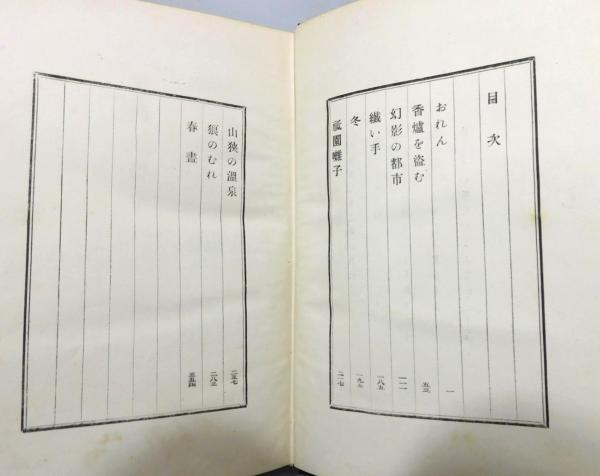 目次
おれん 一
香爐を盗む 五三
幻影の都市 一一一
纖い手 一八五
冬 一九七
祇園囃子 二一七
山狹の溫泉 二五七
狼のむれ 二八三
春晝 三五四